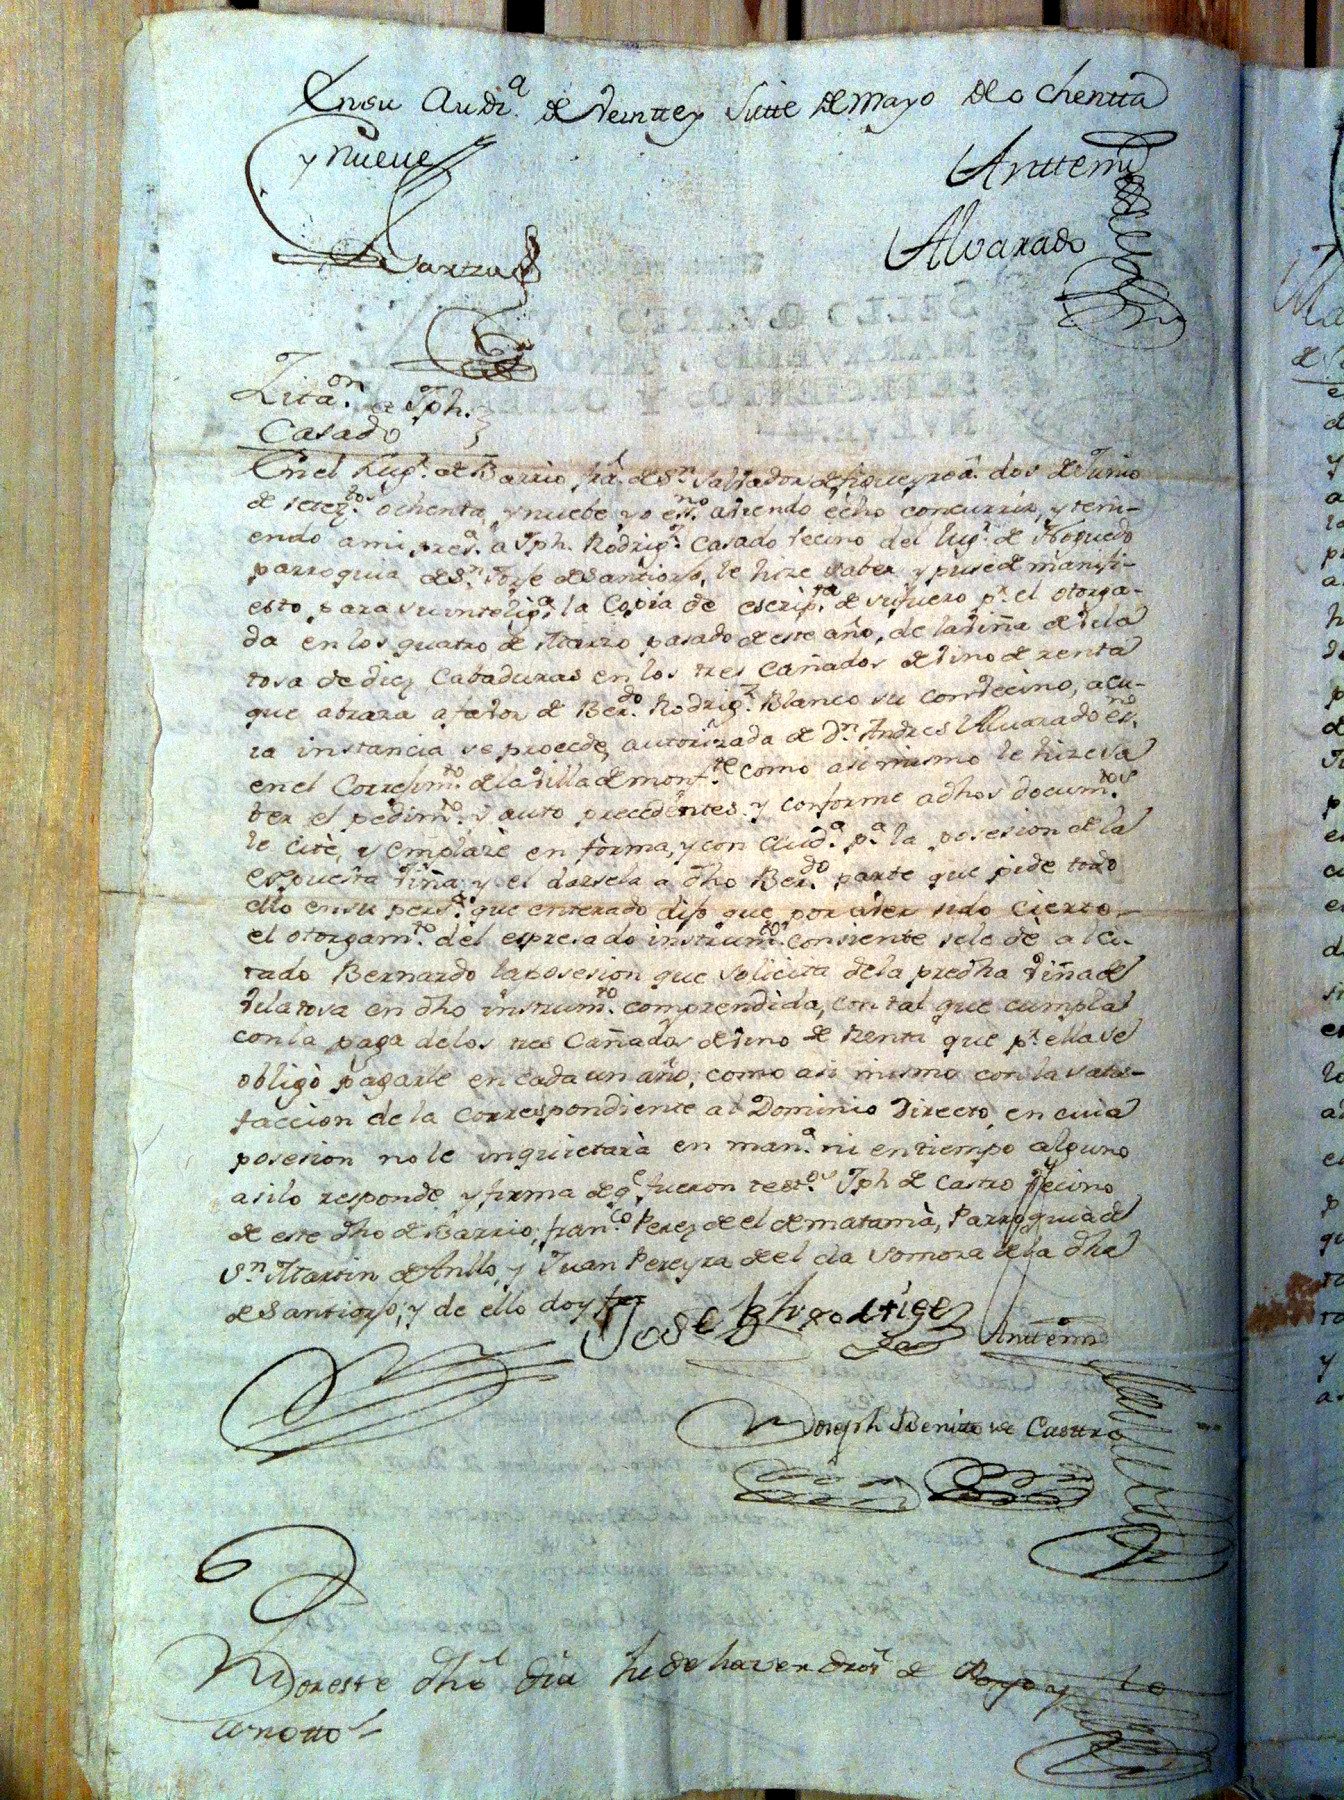 En su Audi.ª de Veintte y Siette de Mayo de ochentta
y nueve
Anttemi
Alvarado
Zita.on a Jph.
Casado
En el Lug.r de Barrio fra. de S.n Salvador de a dos de Junio
de setez.tos ochenta, y nuebe yo es.no aviendo echo concurrir, y teni-
endo a mi pres.a a Jph. Rodrig.z Casado vecino del lug.r de Noguedo
parroquia de S.n Jorje de Santiorjo, le hize saber y puse de manifi-
esto para su intelig.a la Copia de escrip.ra de su fuero p.r el otorga-
da en los quatro de Marzo pasado de este año, de la viña de Vila
tova de diez Cabaduras en los tres Cañados de vino de renta
que abraza a favor de Ber.do Rodrig.z Blanco su convecino, a cu-
ia instancia se procede, autorizada de D.n Andres Alvarado es.no
en el Correjim.to de la Villa de Monf.te como asi mismo le hize sa
ber el pedim.to y auto precedentes y conforme a dhos docum.tos
le citè, y emplazè en forma, y con Aud.a p.a la posesion de la
espuesta viña y el darsela a dho Ber.do parte que pide todo
ello en su pers.a que enterado dijo que por aver sido cierto
el otorgam.to del espresado instrum.to consiente se le dè al ci-
tado Bernardo la posesion que solicita de la predha viña de
Vilatova en dho instrum.to comprendida, con tal que cumpla
con la paga de los tres Cañados de vino de Renta que p.r ella se
obligò pagarle en cada un año, como asi mismo con la satis-
faccion de la correspondiente al Dominio Directo, en cuia
posesion no le inquietarà en man.a ni en tiempo alguno
asi lo responde y firma de q.e fueron test.os Jph de Castro vecino
de este dho de Barrio, fran.co Perez de el de matamà, Parroquia de
S.n Martin de Anllo, y Juan Pereyra de el da Somoza de la dha
de Santiorjo, y de ello doy fee
Joseph rodrigez
Anttemi
Joseph Benito de Casttro
Por este dho dia he de haver dros de
lo anotto